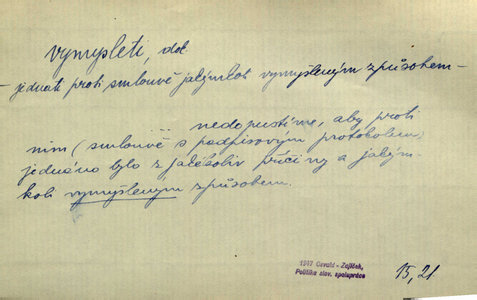 vymysleti, dok.
– jednati proti smlouvě jakýmkoli vymyšleným způsobem –
... nedopustíme, aby proti
nim (smlouvě s podpisovým protokolem)
jednáno bylo z jakékoliv příčiny a jakým-
koli vymyšleným způsobem.
1947 Osvald - Zajíček,
Politika slov. spolupráce
15, 21